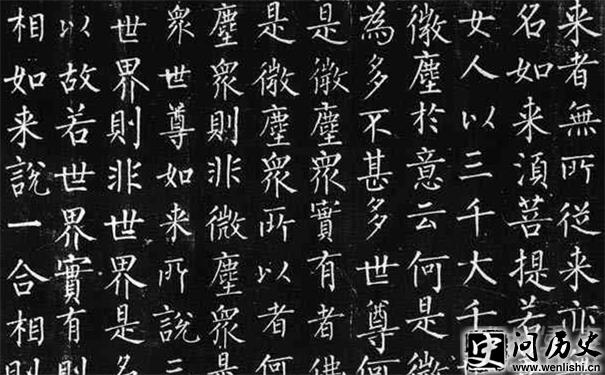 来者無所従来亦
名如来須菩提若
女人以三千大千
微塵於意云何是微
為多不甚多世尊何
是微塵衆實有者佛
是微塵衆所以者何
塵衆則非微塵衆是
衆世尊如来所說三
世界則非世界是名
以故若世界實有則
相如来說一合相則
问历史
www.wenlishi.cn